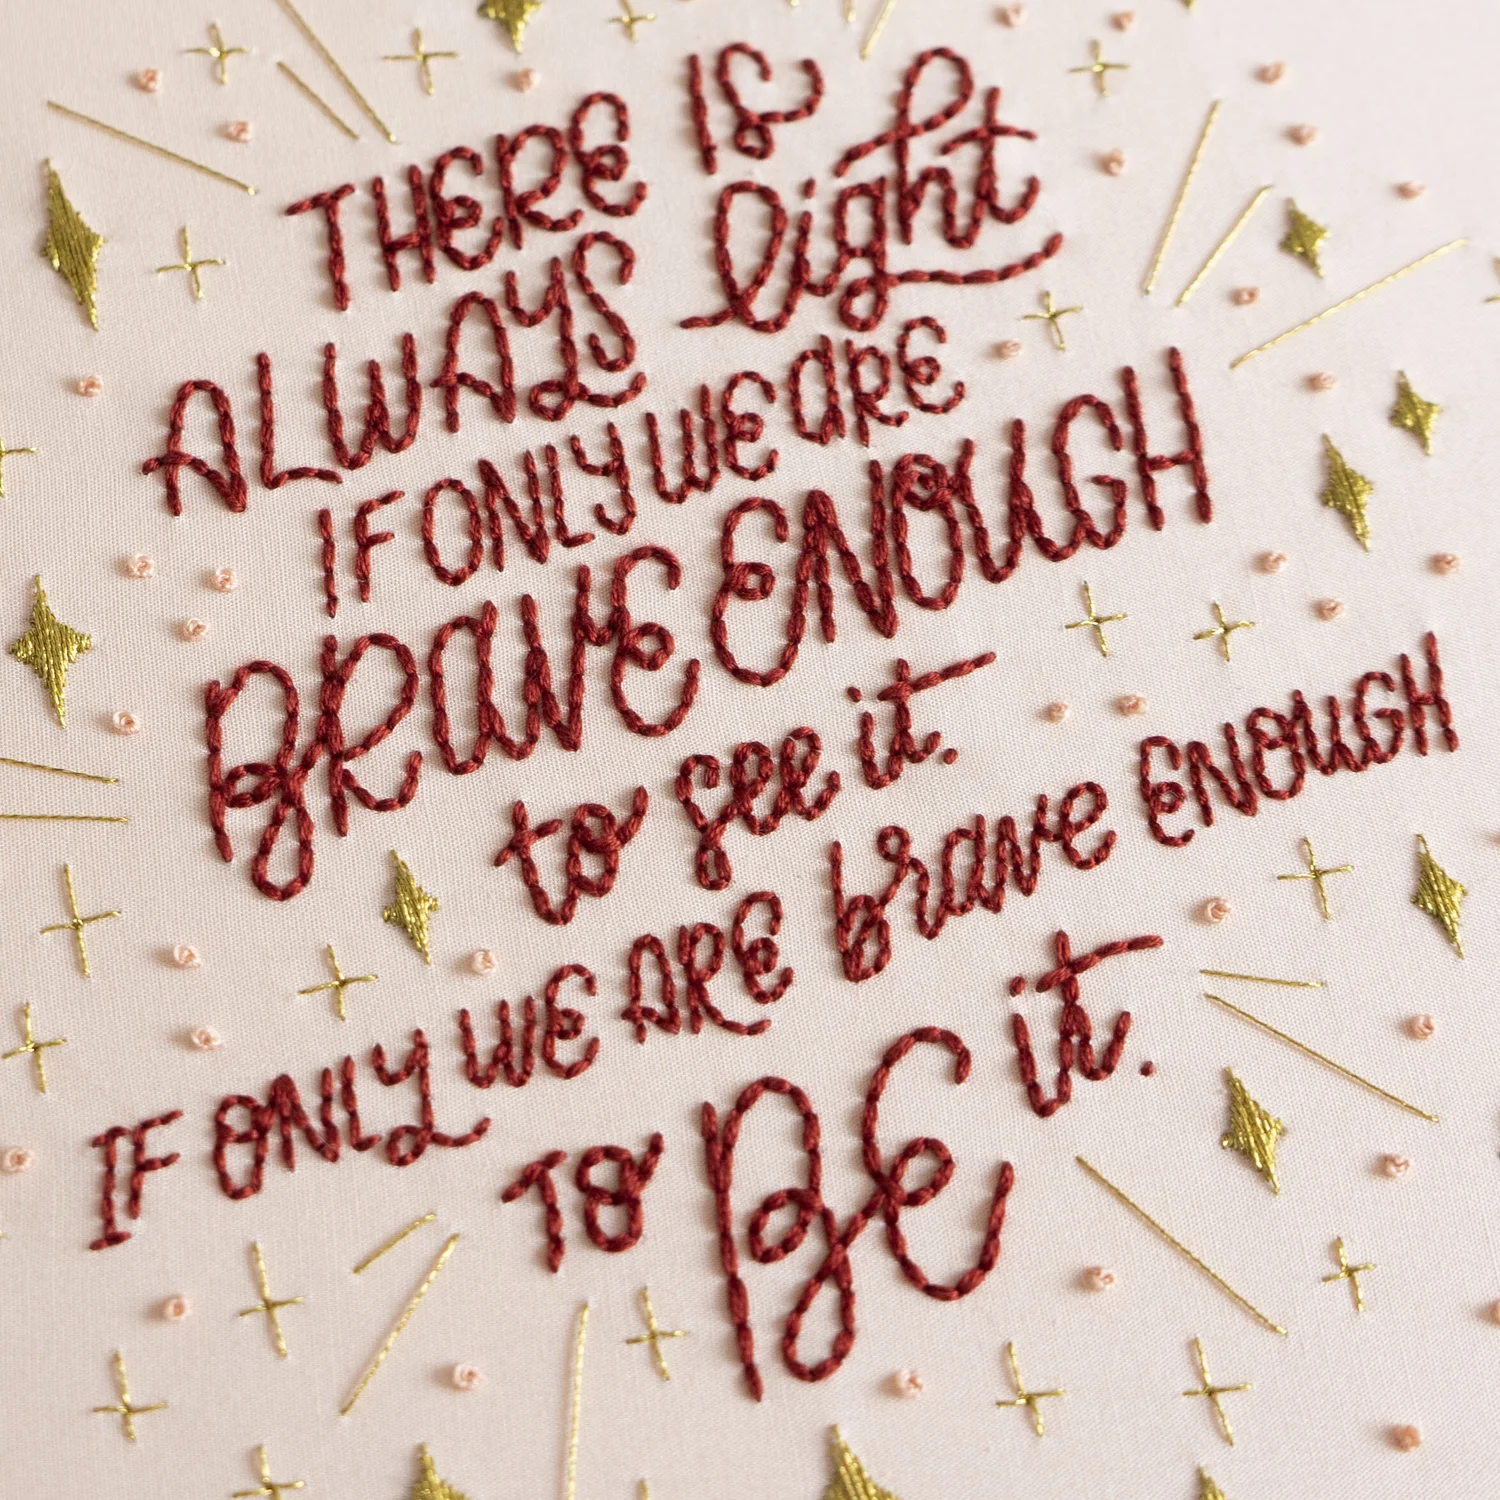 THERE IS
ALWAYS light
IF ONLY WE ARE
BRAVE ENOUGH
to see it.
IF ONLY WE ARE brave ENOUGH
TO BE it.